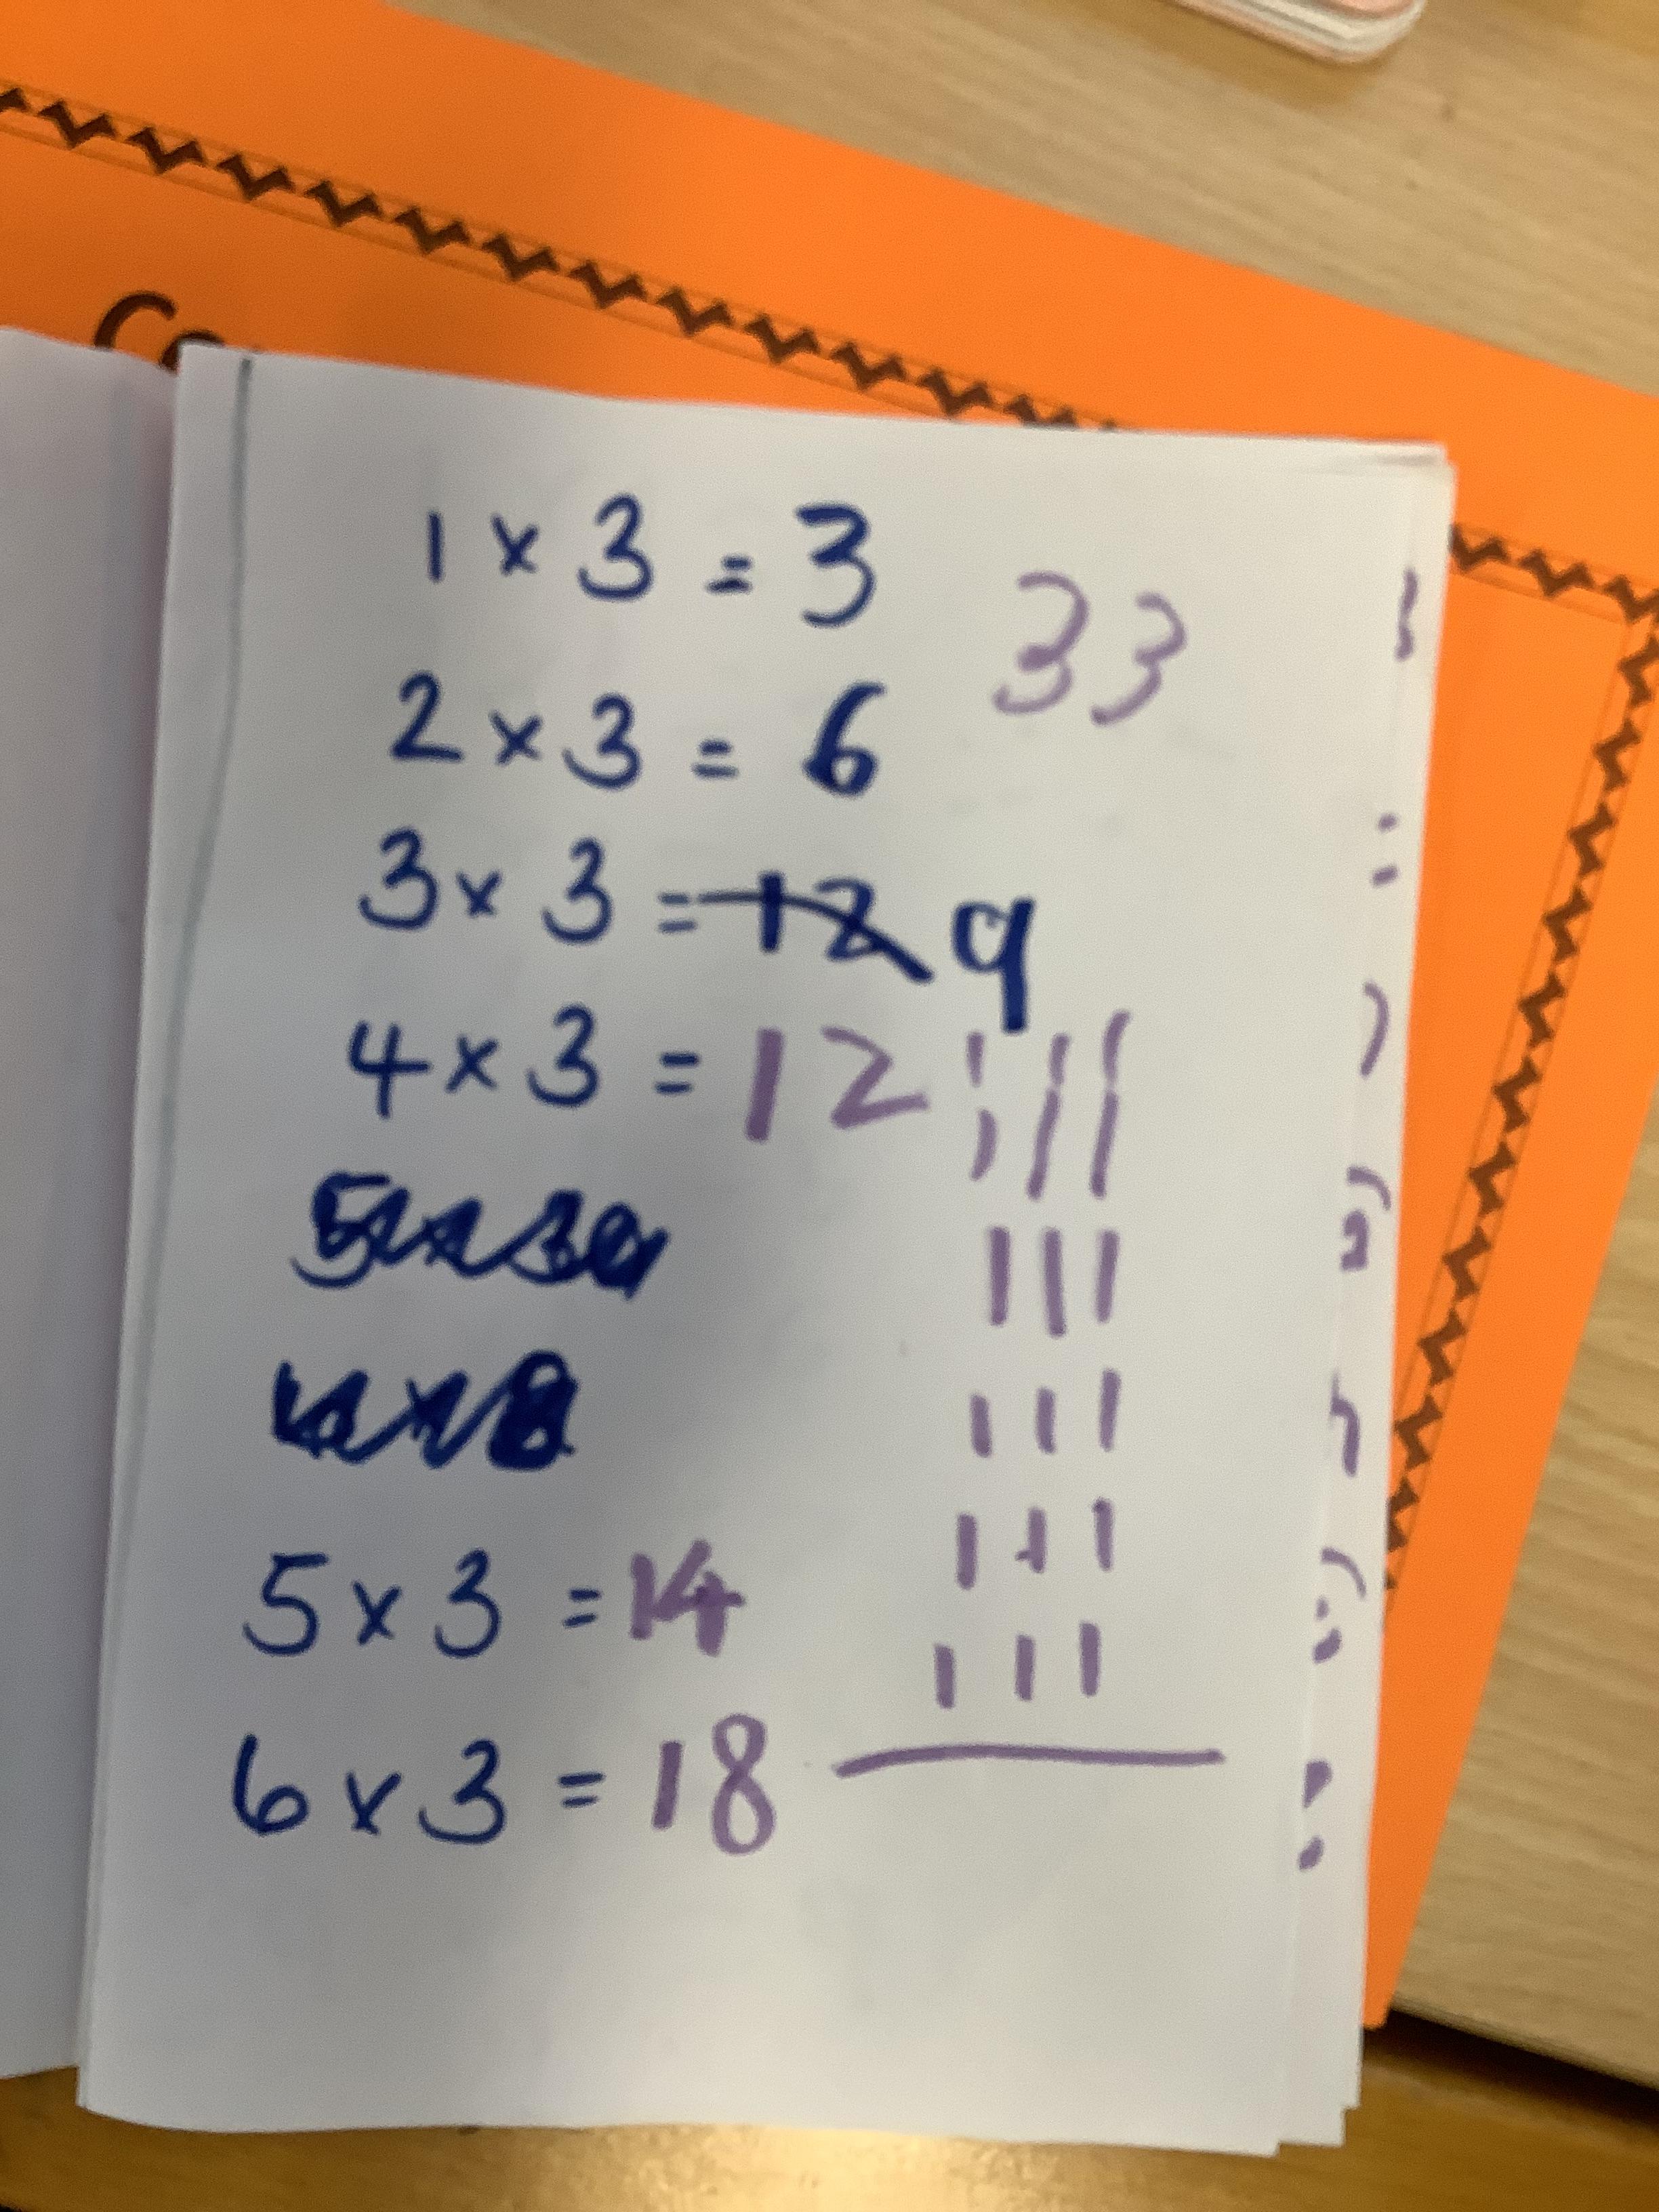 Co
1 × 3 = 3 33
2 × 3 = 6
3 × 3 = 12 9
4 × 3 = 12
5 × 3 = 14
6 × 3 = 18